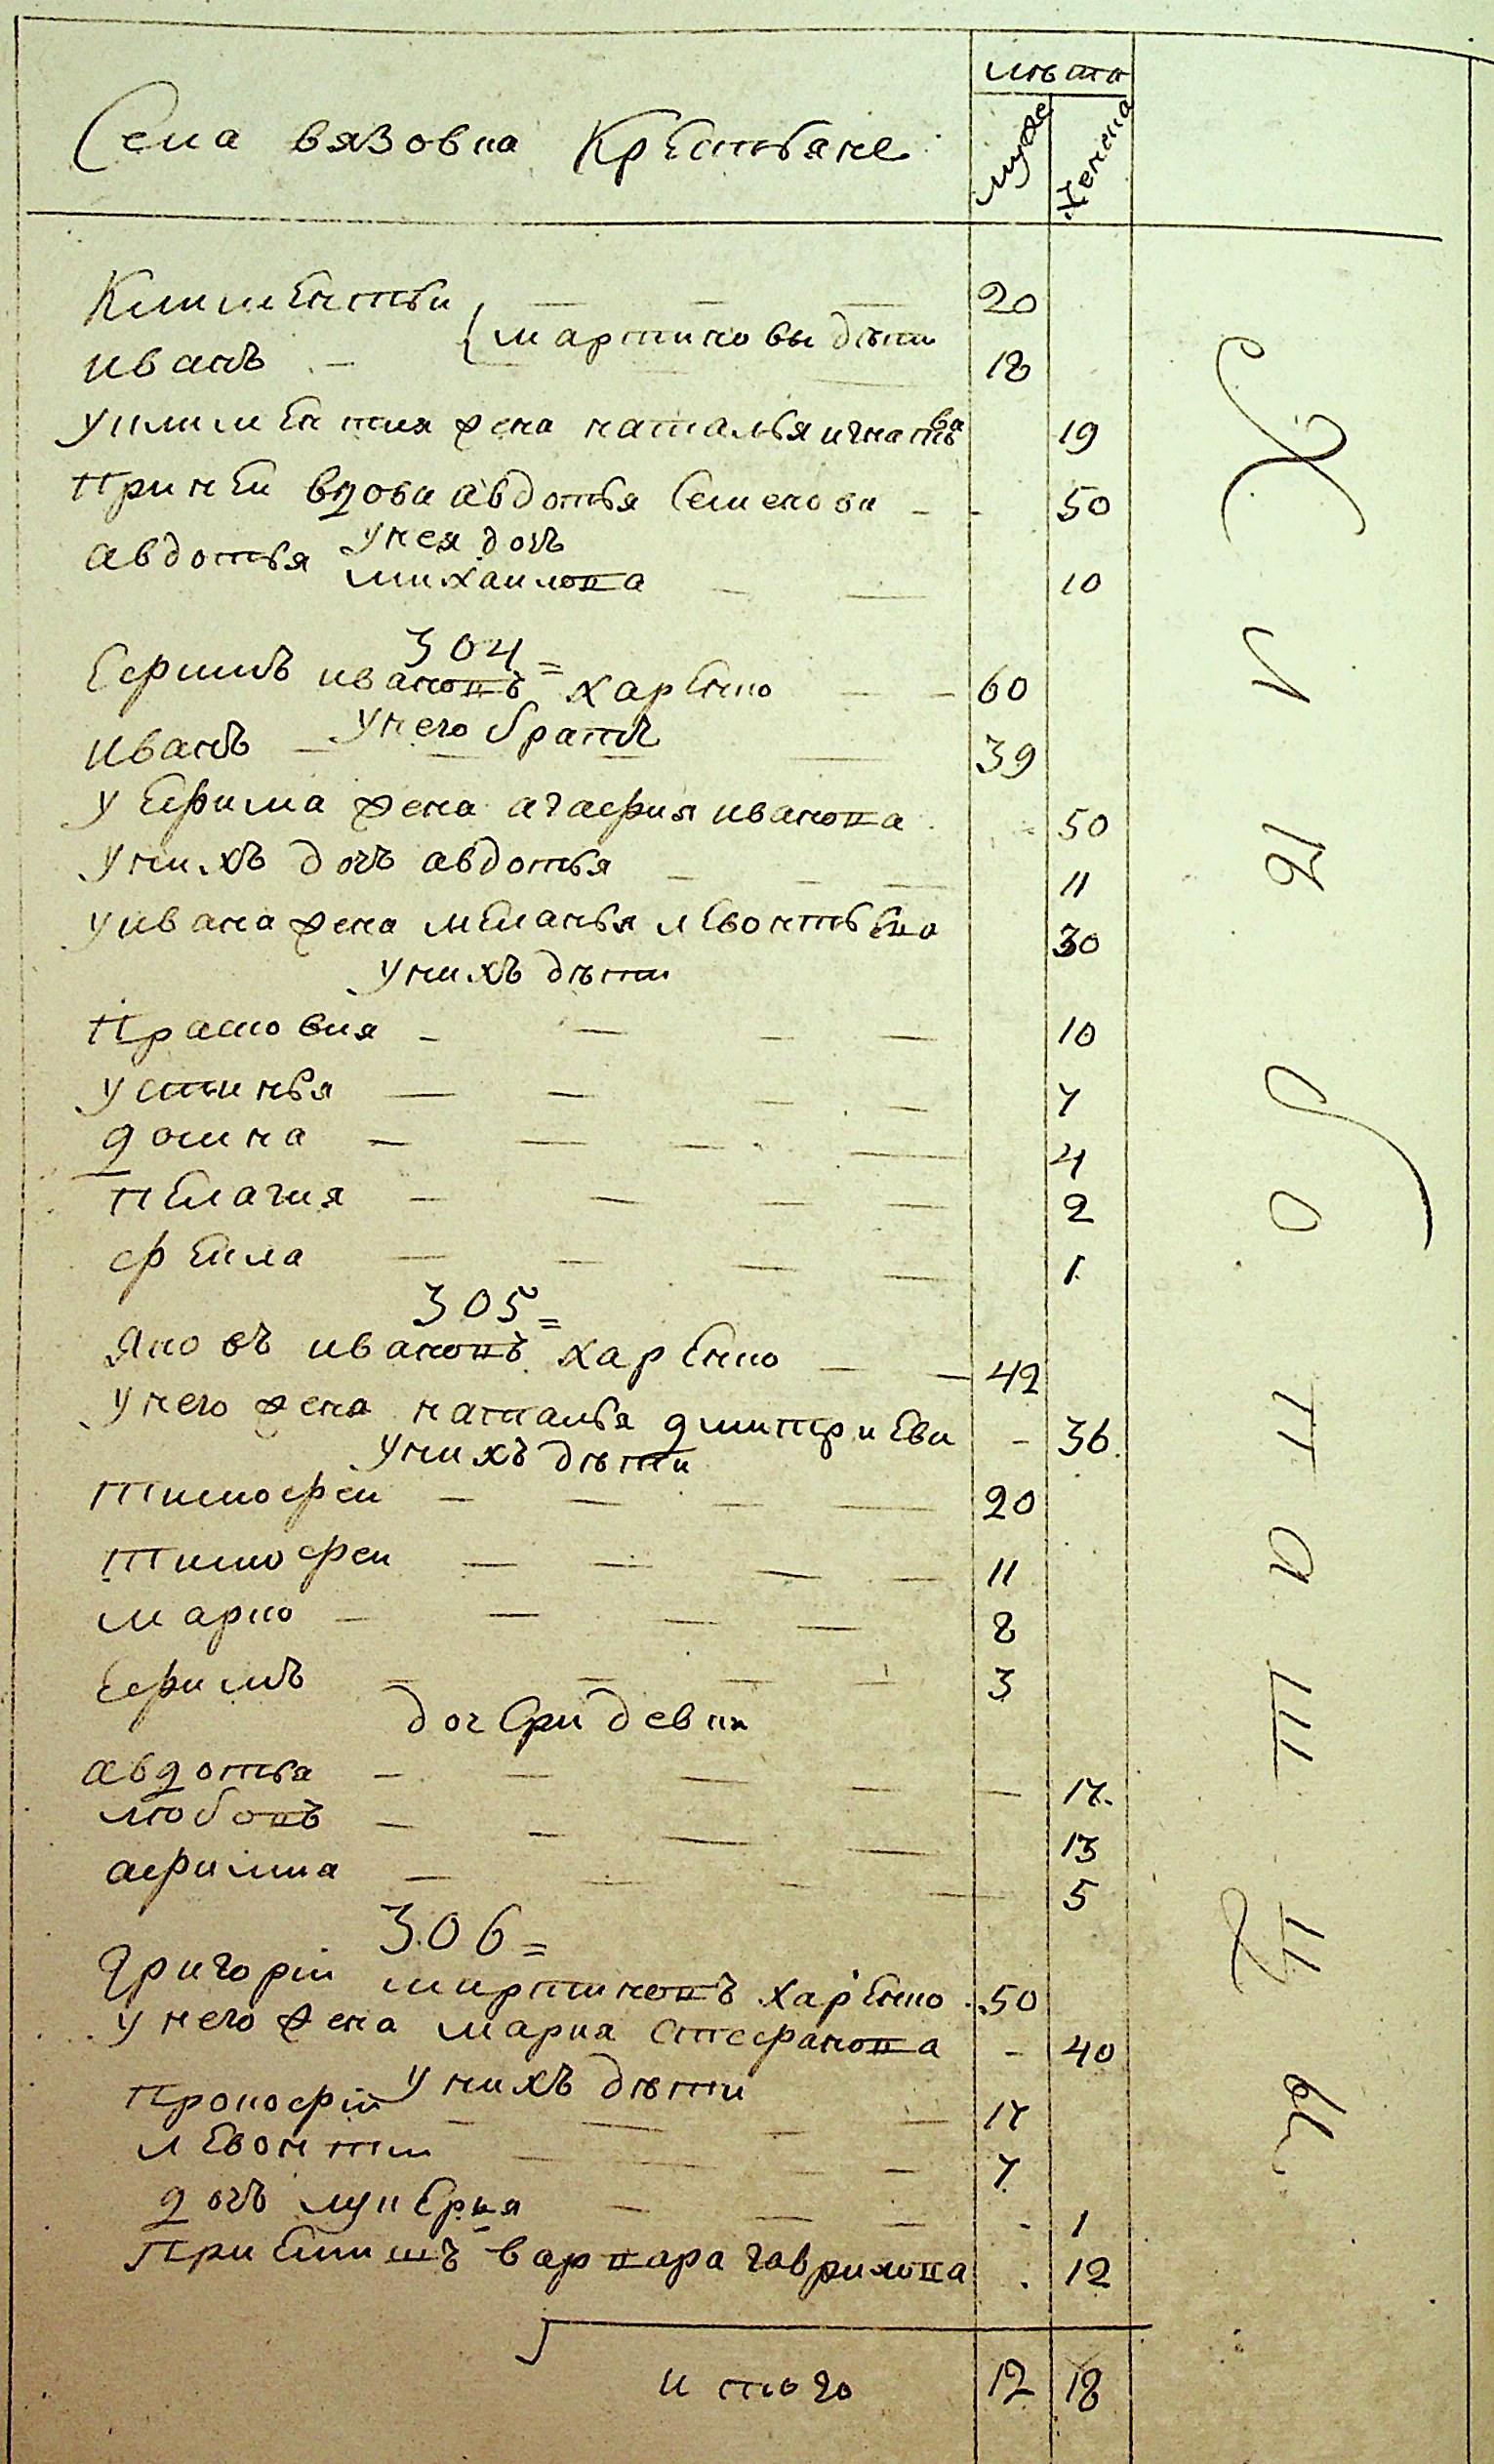 лѣта
Села вязовка Крестьяне
мужс
женска
Климентьи 20
{мартиновы дѣти
иванъ 18
у климентия жена наталья игнатьева 19
при ней вдова авдотья Семенова 50
у нея дочь
авдотья михаилова 10
304
Ефимъ ивановъ харенко 60
иванъ у него братъ 39
у Ефима жена агафия иванова 50
у нихъ дочь авдотья 11
у ивана жена меланья левонтьева 30
у нихъ дѣти
прасковия 10
устинья 7
домна 4
пелагия 2
фекла 1
305
Яковъ ивановъ харенко 42
у него жена наталья дмитриева 36
у нихъ дѣти
тимофеи 20
тимофеи 11
марко 8
Ефимъ 3
дочери девки
авдотья 17
любовъ 13
афимиа 5
306
григорій мартиновъ харенко 50
у него жена мария стефанова 40
у нихъ дѣти
прокофій 17
левонтии 7
дочь лукерия 1
приемышъ варвара гаврилова 12
итого 12 18